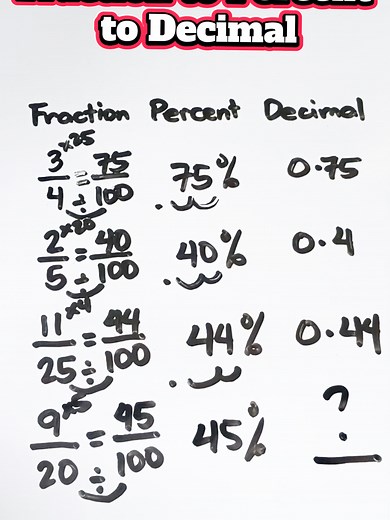 to Decimal
Fraction Percent Decimal
×25
3/4 = 75/100 75% 0.75
÷
×20
2/5 = 40/100 40% 0.4
÷
×4
11/25 = 44/100 44% 0.44
÷
×5
9/20 = 45/100 45% ?
÷